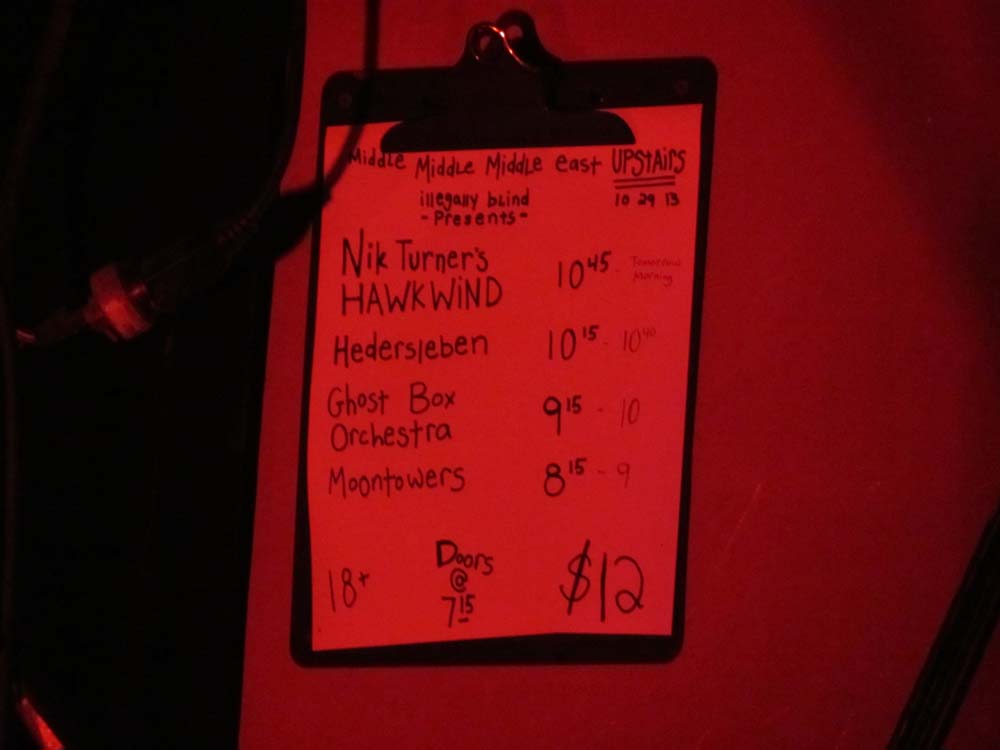 Middle Middle Middle east UPSTAiRS
illegally blind 10 29 13
- Presents -
Nik Turner's
HAWKWiND 10 45 - Tomorrow Morning
Hedersleben 10 15 - 10 40
Ghost Box
Orchestra 9 15 - 10
Moontowers 8 15 - 9
18+ Doors @ 7 15 $12